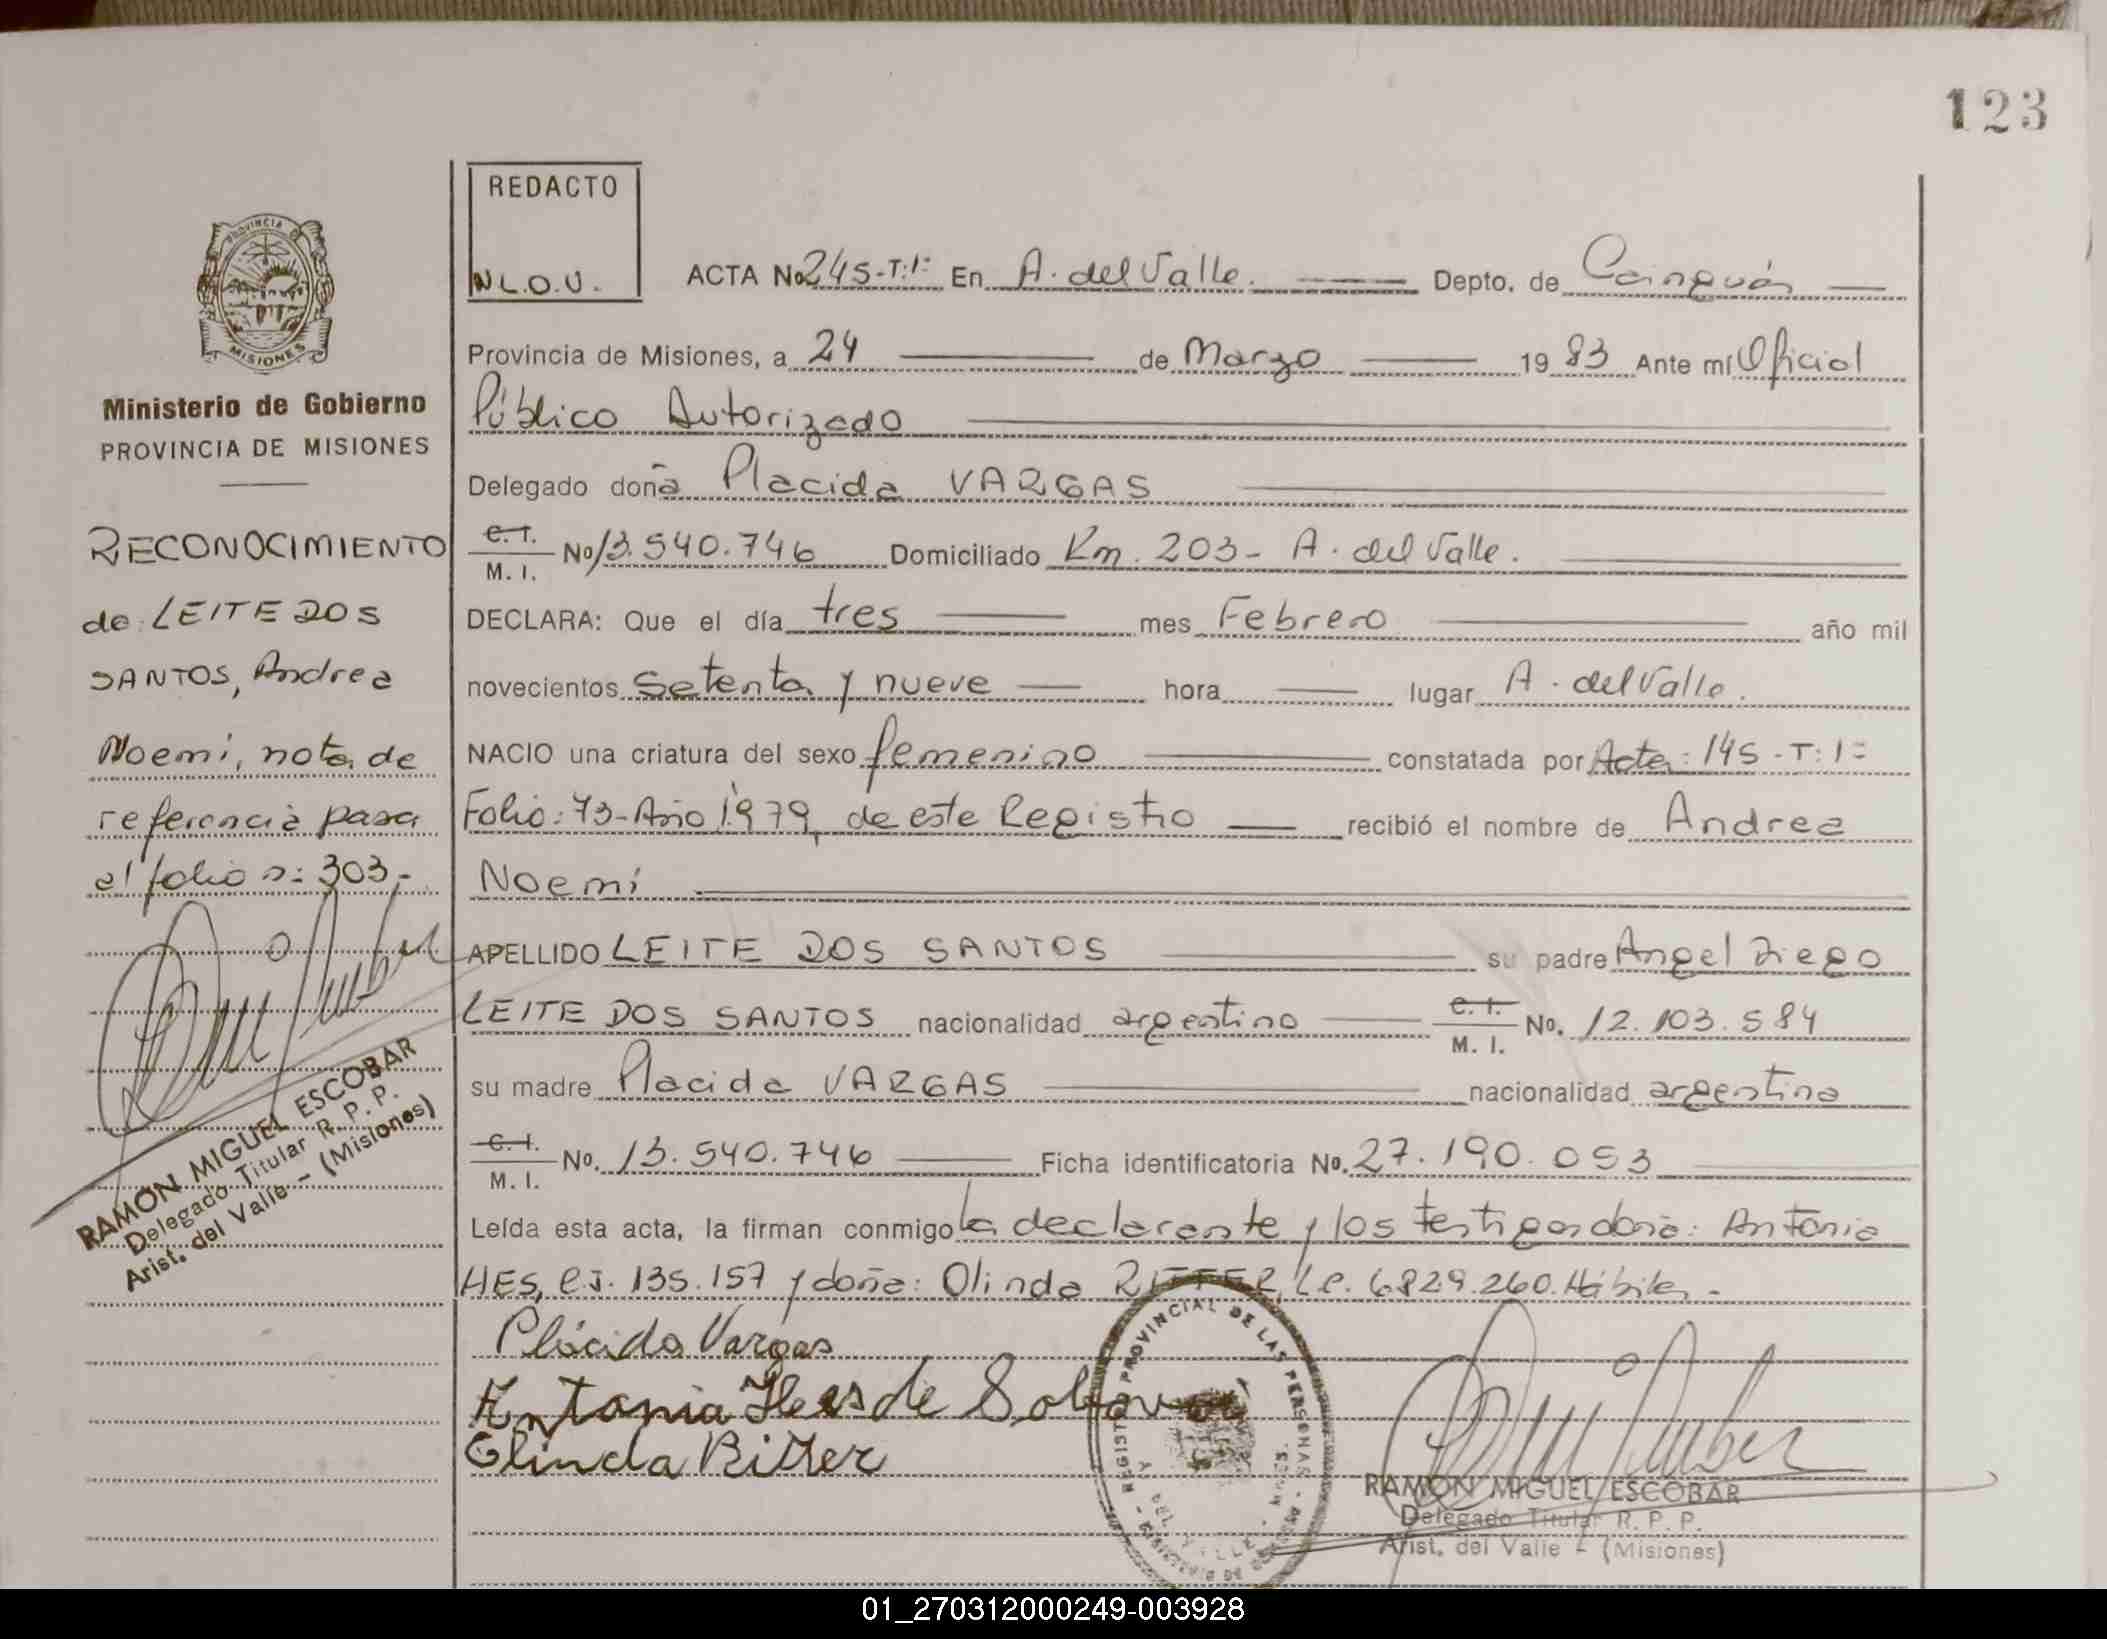 123
REDACTO
N.L.O.V.
ACTA No 245-T:1º En A. del Valle. Depto. de Cainguás
Provincia de Misiones, a 24 de Marzo 1983 Ante mí Oficial
Público Autorizado
Delegado doña Placida VARGAS
C.I. M.I. No 13.540.746 Domiciliado Km. 203- A. del Valle.
DECLARA: Que el día tres mes Febrero año mil
novecientos setenta y nueve hora lugar A. del Valle.
NACIO una criatura del sexo femenino constatada por Acta: 145-T:1º
Folio: 73-Año 1979, de este Registro recibió el nombre de Andrea
Noemí
APELLIDO LEITE DOS SANTOS su padre Angel Diego
LEITE DOS SANTOS nacionalidad argentino C.I. M.I. No. 12.103.584
su madre Placida VARGAS nacionalidad argentina
C.I. M.I. No. 13.540.746 Ficha identificatoria No. 27.190.053
Leída esta acta, la firman conmigo la declarante y los testigos doña: Antonia
HES, C.I. 135.157 y doña: Olinda RITTER, L.C. 6829.260. Hábiles.-
Plácida Vargas
Antonia Hes de
Olinda Ritter
REGISTRO PROVINCIAL DE LAS PERSONAS
RAMON MIGUEL ESCOBAR
Delegado Titular R. P. P.
Arist. del Valle - (Misiones)
PROVINCIA DE
MISIONES
Ministerio de Gobierno
PROVINCIA DE MISIONES
RECONOCIMIENTO
de: LEITE DOS
SANTOS, Andrea
Noemí, nota de
referencia pasa
al folio n: 303.-
RAMON MIGUEL ESCOBAR
Delegado Titular R. P. P.
Arist. del Valle - (Misiones)
01_270312000249-003928